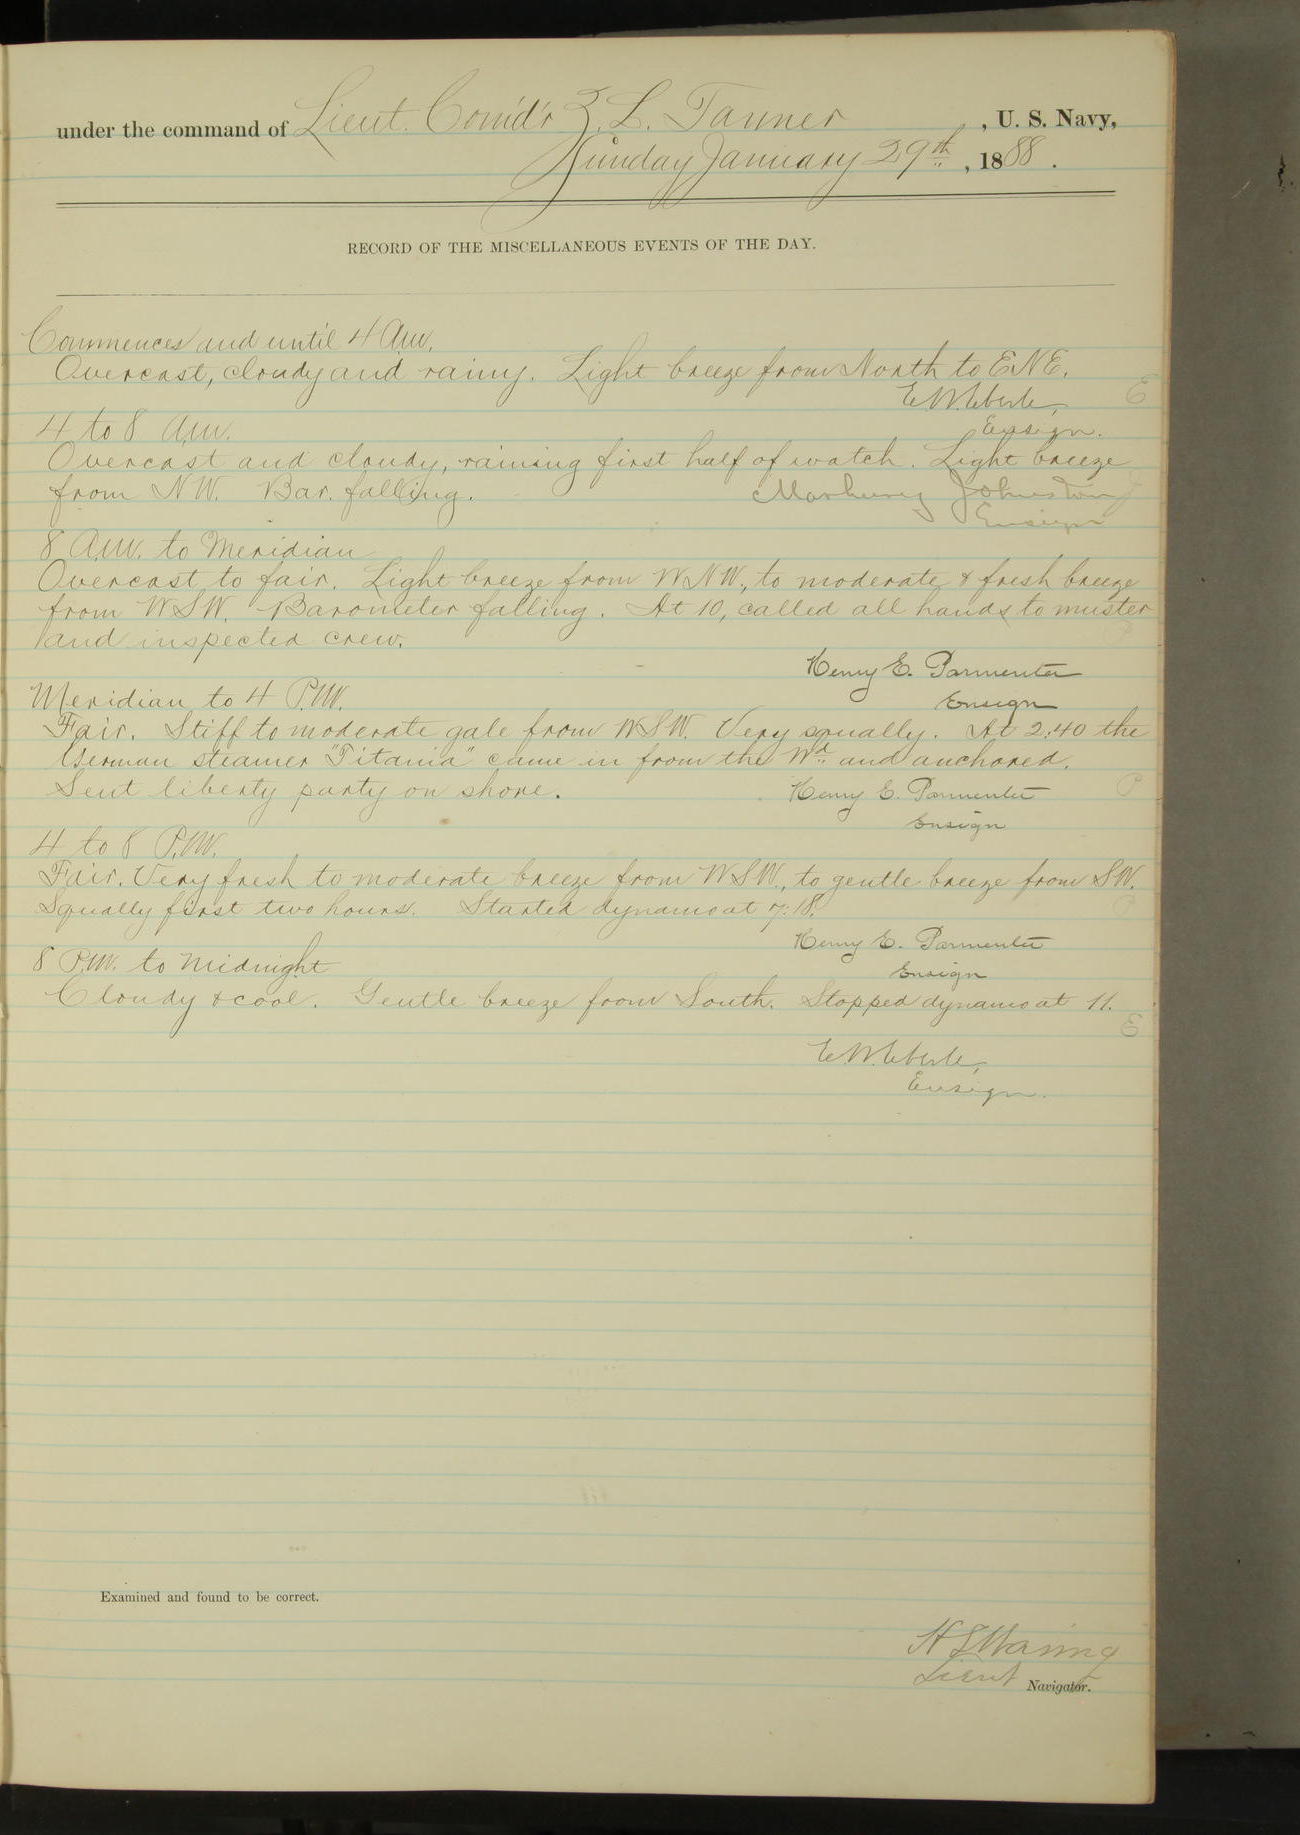 under the command of Lieut. Com'd'r Z. L. Tanner, U. S. Navy,
Sunday January 29th, 1888.
RECORD OF THE MISCELLANEOUS EVENTS OF THE DAY.
Commences and until 4 A.M.
Overcast, cloudy and rainy. Light breeze from North to ENE.
E.W. Eberle, E
Ensign.
4 to 8 A.M.
Overcast and cloudy, raining first half of watch. Light breeze
from NW. Bar. falling. Marbury Johnston J
Ensign
8 A.M. to Meridian
Overcast to fair. Light breeze from WNW., to moderate & fresh breeze
from WSW. Barometer falling. At 10, called all hands to muster
and inspected crew. P
Henry E. Parmenter
Ensign
Meridian to 4 P.M.
Fair. Stiff to moderate gale from WSW. Very squally. At 2:40 the
German steamer "Titania" came in from the Wd. and anchored.
Sent liberty party on shore. Henry E. Parmenter P
Ensign
4 to 8 P.M.
Fair. Very fresh to moderate breeze from WSW., to gentle breeze from SW.
Squally first two hours. Started dynamo at 7:18. P
Henry E. Parmenter
Ensign
8 P.M. to Midnight
Cloudy & cool. Gentle breeze from South. Stopped dynamo at 11.
E
E.W. Eberle,
Ensign.
Examined and found to be correct.
H S Waring
Lieut Navigator.